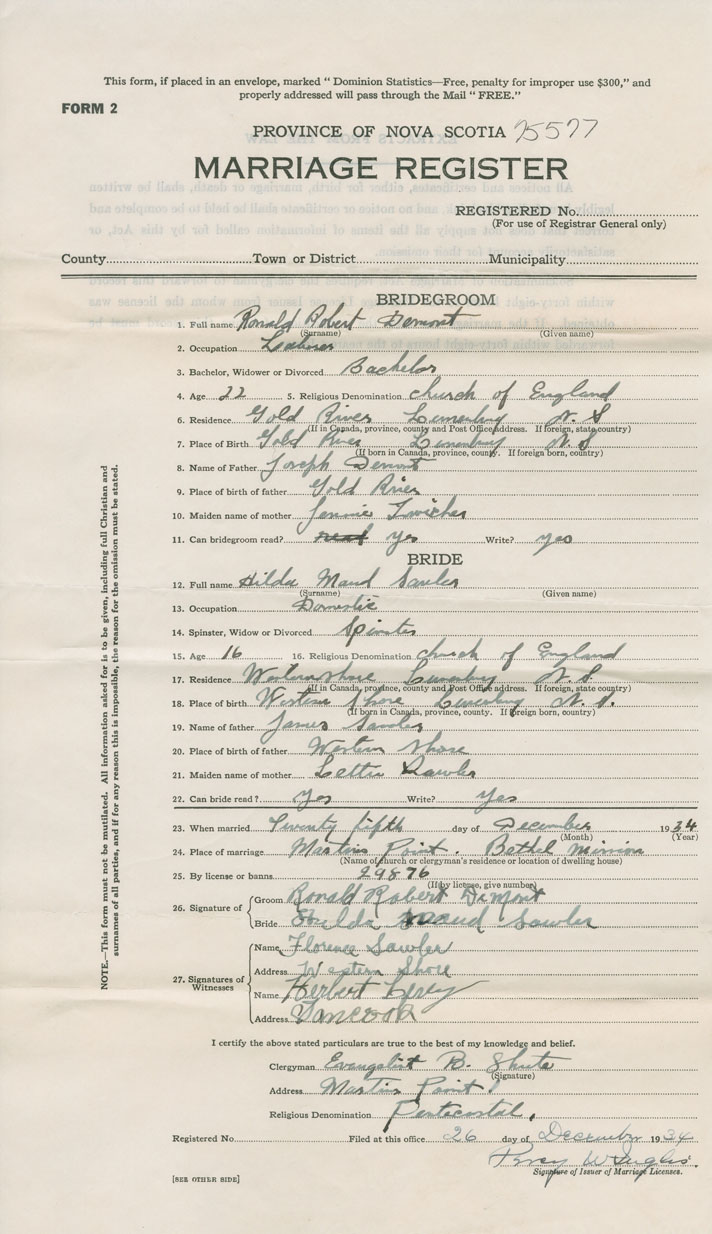 This form, if placed in an envelope, marked “ Dominion Statistics—Free, penalty for improper use $300,” and
properly addressed will pass through the Mail “ FREE.”
FORM 2
PROVINCE OF NOVA SCOTIA 25577
MARRIAGE REGISTER
REGISTERED No.
(For use of Registrar General only)
County Town or District Municipality
BRIDEGROOM
1. Full name Ronald Robert Demont
(Surname) (Given name)
2. Occupation Laborer
3. Bachelor, Widower or Divorced Bachelor
4. Age 22 5. Religious Denomination church of England
6. Residence Gold River Lunenburg N. S
(If in Canada, province, county and Post Office address. If foreign, state country)
7. Place of Birth Gold River Lunenburg N. S.
(If born in Canada, province, county. If foreign born, country)
8. Name of Father Joseph Demont
9. Place of birth of father Gold River
10. Maiden name of mother Jennie
11. Can bridegroom read? read yes Write? yes
BRIDE
12. Full name Hilda Maud Sawler
(Surname) (Given name)
13. Occupation Domestic
14. Spinster, Widow or Divorced Spinster
15. Age 16 16. Religious Denomination church of England
17. Residence Western shore Lunenburg N. S.
(If in Canada, province, county and Post Office address. If foreign, state country)
18. Place of birth Western Shore Lunenburg N. S.
(If born in Canada, province, county. If foreign born, country)
19. Name of father James Sawler
20. Place of birth of father Western shore
21. Maiden name of mother Lettie Sawler
22. Can bride read? yes Write? Yes
23. When married Twenty fifth day of December 1934
(Month) (Year)
24. Place of marriage Martins Point. Bethel mission
(Name of church or clergyman's residence or location of dwelling house)
25. By license or banns 29876
(If by license, give number)
26. Signature of Groom Ronald Robert DeMont
Bride Hilda maud Sawler
27. Signatures of Witnesses
Name Florence Sawler
Address Western Shore
Name Herbert
Address Tancook
I certify the above stated particulars are true to the best of my knowledge and belief.
Clergyman Evangelist B. Shute
(Signature)
Address Martins Point
Religious Denomination Pentecostal.
Registered No. Filed at this office 26 day of December 1934
Percy
Signature of Issuer of Marriage Licenses.
[SEE OTHER SIDE]
NOTE.—This form must not be mutilated. All information asked for is to be given, including full Christian and
surnames of all parties, and if for any reason this is impossible, the reason for the omission must be stated.